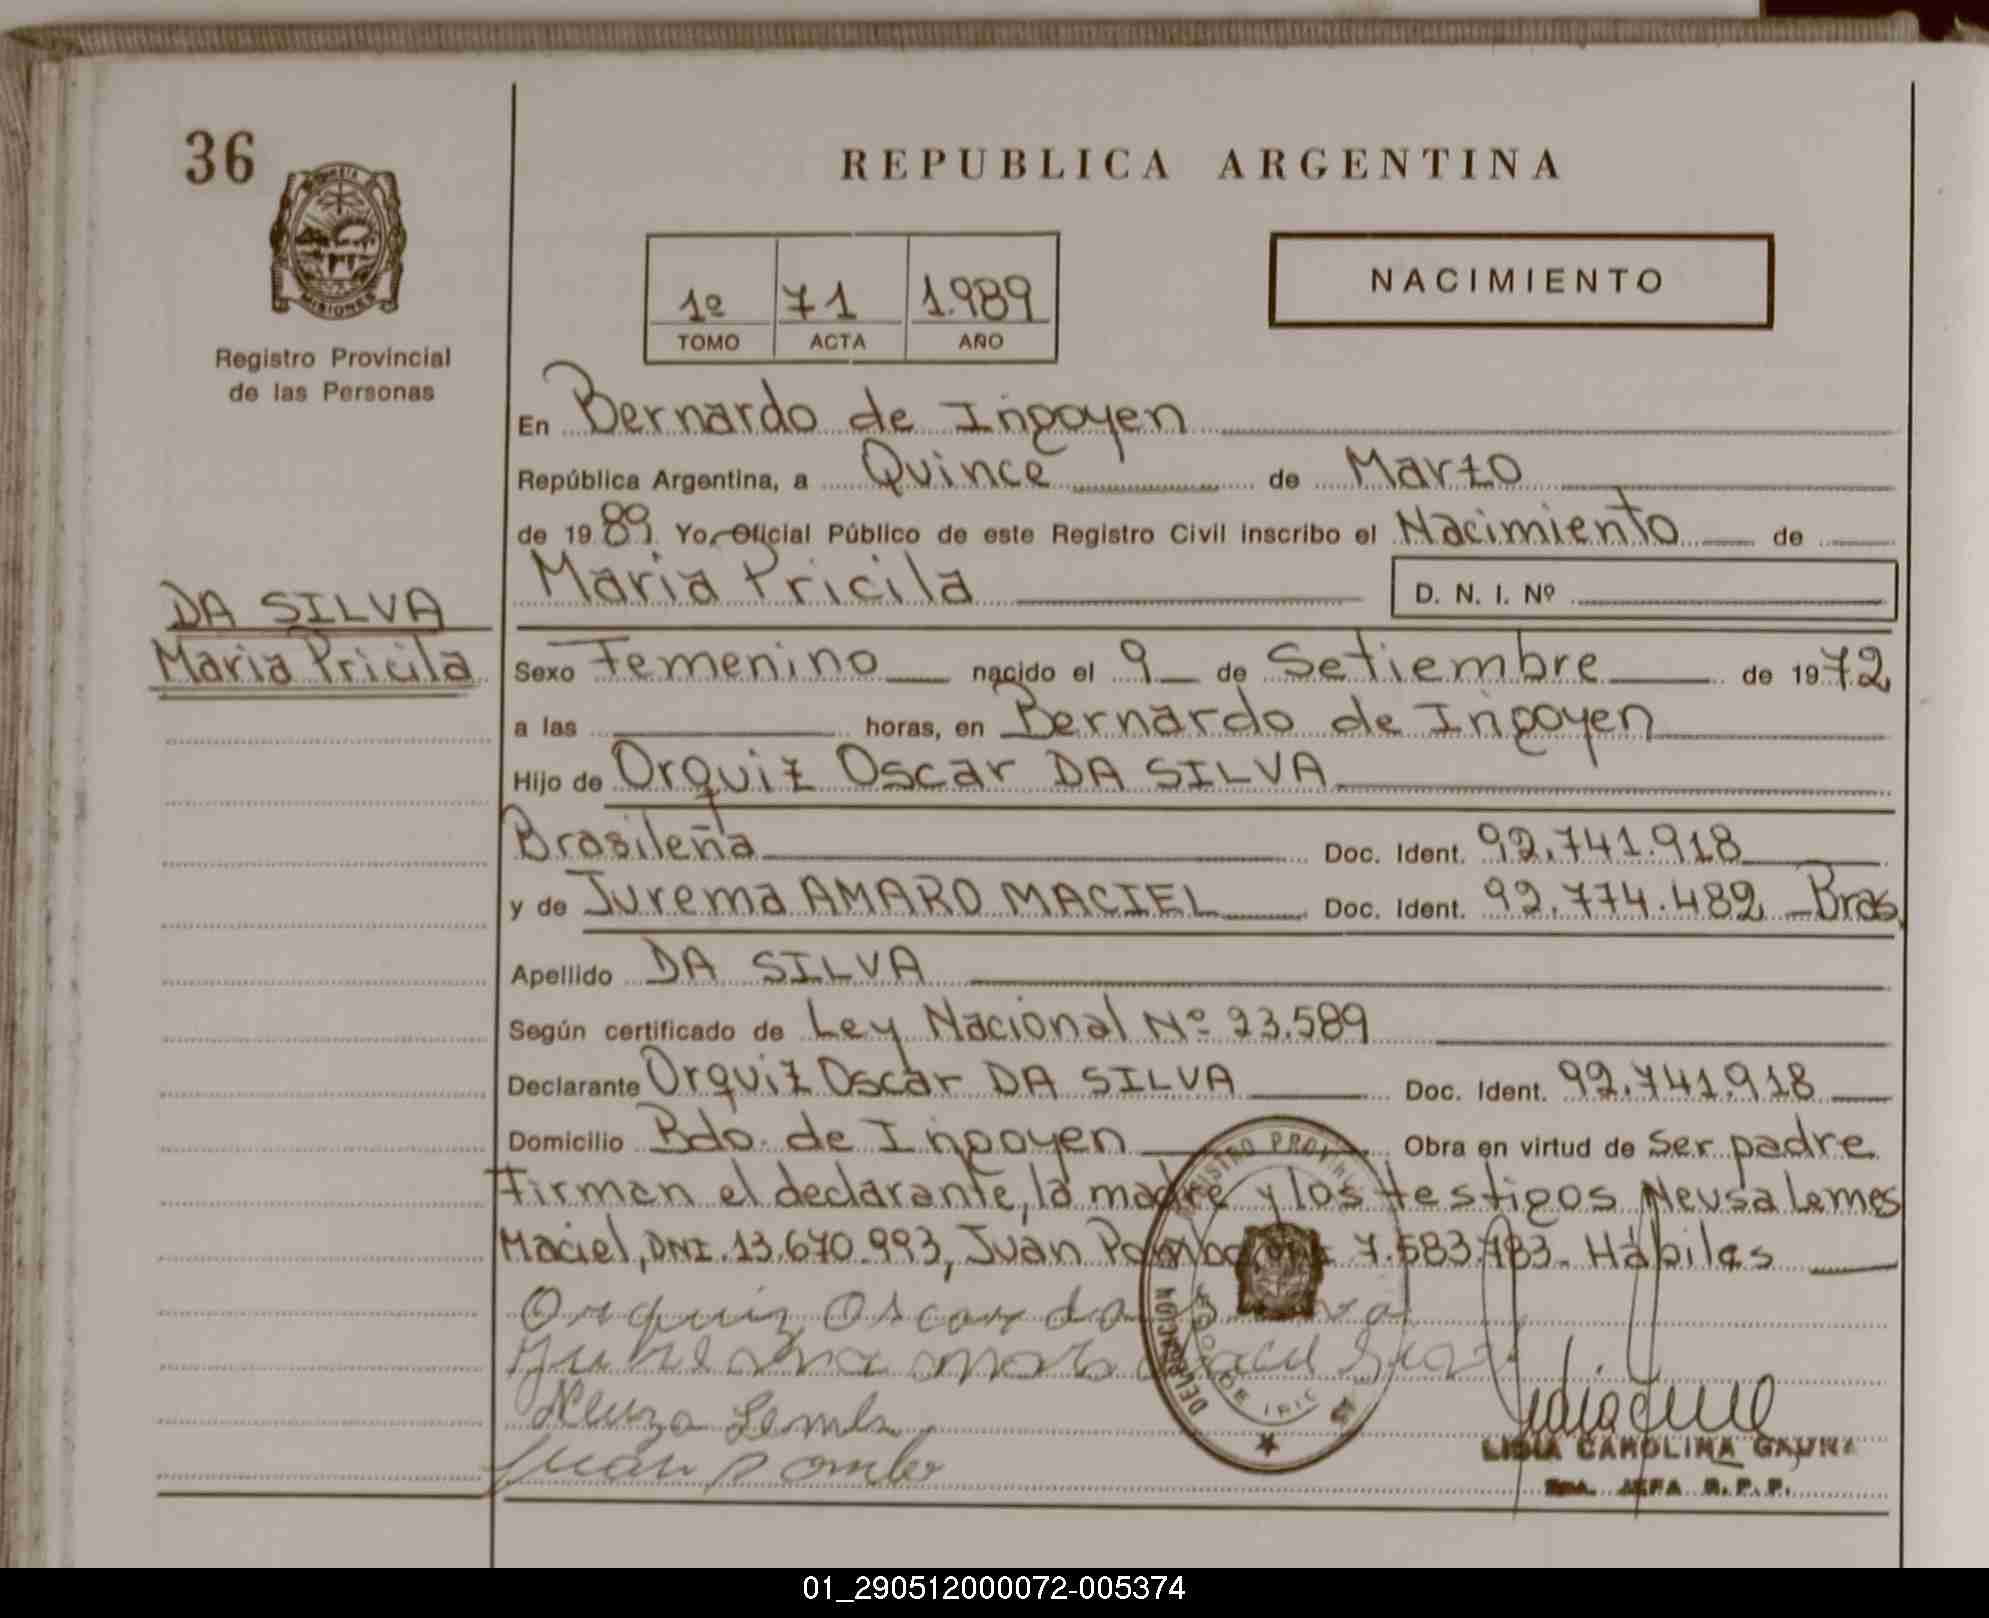 36
REPUBLICA ARGENTINA
MISIONES
Registro Provincial
de las Personas
1º 71 1.989
TOMO ACTA AÑO
NACIMIENTO
En Bernardo de Irigoyen
República Argentina, a Quince de Marzo
de 1989. Yo, Oficial Público de este Registro Civil inscribo el Nacimiento de
Maria Pricila D. N. I. Nº
DA SILVA
Maria Pricila
Sexo Femenino nacido el 9 de Setiembre de 1972
a las horas, en Bernardo de Irigoyen
Hijo de Orquiz Oscar DA SILVA
Brasileña Doc. Ident. 92.741.918
y de Jurema AMARO MACIEL Doc. Ident. 92.774.482 Bras.
Apellido DA SILVA
Según certificado de Ley Nacional Nº 23.589
Declarante Orquiz Oscar DA SILVA Doc. Ident. 92.741.918
Domicilio Bdo. de Irigoyen Obra en virtud de Ser padre
Firman el declarante, la madre y los testigos Neusa Lemes
Maciel, DNI. 13.670.993, Juan 7.583.783. Hábiles
Orquiz Oscar da
Neuza Lemes
Juan Pombo
LIDIA CAROLINA GAUNA
JEFA R. P. P.
01_290512000072-005374